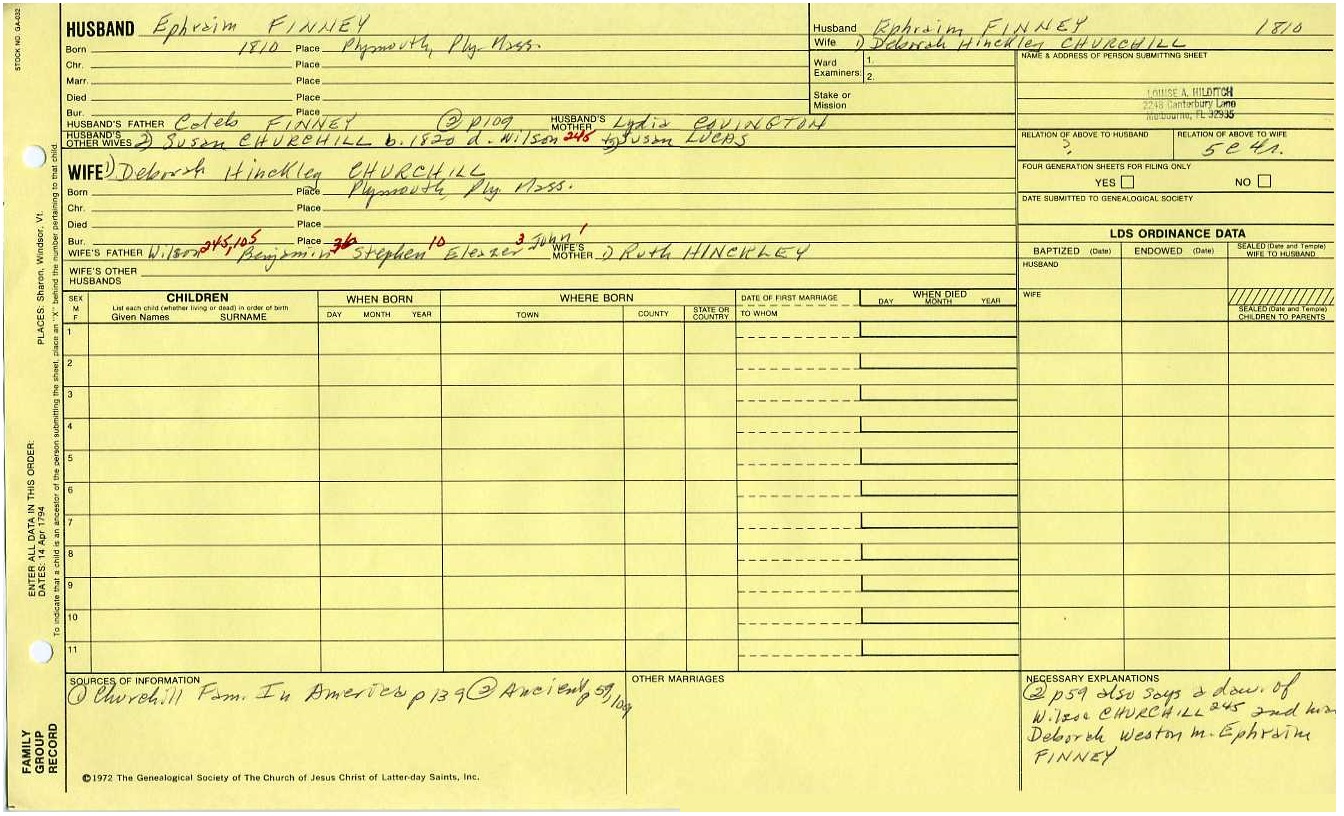 STOCK NO. GA-032
HUSBAND Ephraim FINNEY
Born 1810 Place Plymouth, Ply. Mass.
Chr. Place
Marr. Place
Died Place
Bur. Place
HUSBAND'S FATHER Caleb FINNEY ② p109 HUSBAND'S MOTHER Lydia COVINGTON
HUSBAND'S OTHER WIVES 2) Susan CHURCHILL b. 1820 d. Wilson 245 Susan LUCAS
Husband Ephraim FINNEY 1810
Wife 1) Deborah Hinckley CHURCHILL
Ward Examiners: 1.
2.
Stake or Mission
NAME & ADDRESS OF PERSON SUBMITTING SHEET
LOUISE A. HILDITCH
2248 Canterbury Lane
Melbourne, FL 32935
RELATION OF ABOVE TO HUSBAND RELATION OF ABOVE TO WIFE
? 5C4r.
FOUR GENERATION SHEETS FOR FILING ONLY
YES NO
DATE SUBMITTED TO GENEALOGICAL SOCIETY
WIFE 1) Deborah Hinckley CHURCHILL
Born Place Plymouth, Ply Mass.
Chr. Place
Died Place
Bur. Place
WIFE'S FATHER Wilson 245,105 Benjamin 36 Stephen 10 Eleazer 3 John 1 WIFE'S MOTHER 1) Ruth HINCKLEY
WIFE'S OTHER HUSBANDS
LDS ORDINANCE DATA
BAPTIZED (Date) ENDOWED (Date) SEALED (Date and Temple) WIFE TO HUSBAND
HUSBAND
WIFE
SEALED (Date and Temple) CHILDREN TO PARENTS
SEX M F
CHILDREN
List each child (whether living or dead) in order of birth
Given Names SURNAME
WHEN BORN
DAY MONTH YEAR
WHERE BORN
TOWN COUNTY STATE OR COUNTRY
DATE OF FIRST MARRIAGE
TO WHOM
WHEN DIED
DAY MONTH YEAR
1
2
3
4
5
6
7
8
9
10
11
SOURCES OF INFORMATION
① Churchill Fam. In America p139 ② Ancient p59, 109
OTHER MARRIAGES
NECESSARY EXPLANATIONS
② p59 also says a dau. of
Wilson CHURCHILL 245 and
Deborah Weston m. Ephraim
FINNEY
©1972 The Genealogical Society of The Church of Jesus Christ of Latter-day Saints, Inc.
FAMILY GROUP RECORD
ENTER ALL DATA IN THIS ORDER:
DATES: 14 Apr 1794
PLACES: Sharon, Windsor, Vt.
To indicate that a child is an ancestor of the person submitting the sheet, place an "X" behind the number pertaining to that child.